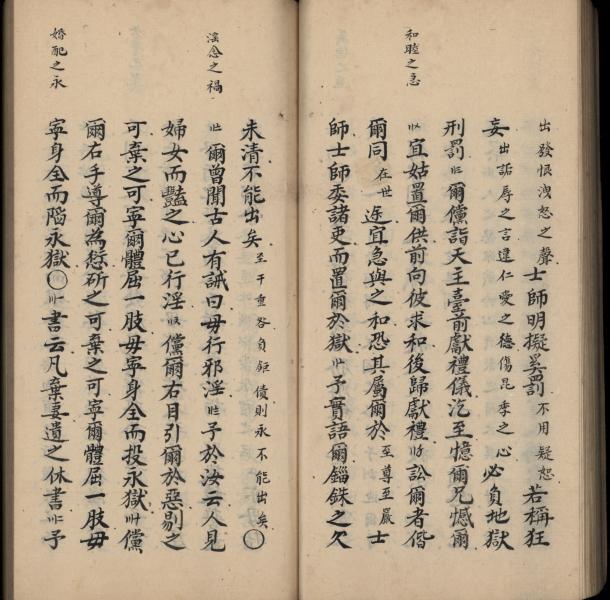 和睦之急
出發恨洩怒之聲士師明擬奚罰不用疑恕若稱狂
妄出詬辱之言違仁愛之德傷昆季之心必負地獄
刑罰爾儻詣天主臺前獻禮儀汔至憶爾兄憾爾
宜姑置爾供前向彼求和後歸獻禮訟爾者偕
爾同在世迬宜急與之和恐其屬爾於至尊至嚴士
師士師委諸吏而置爾於獄予實語爾錙銖之欠
未清不能出矣至于重咎負鉅債則永不能出矣〇
淫念之禍
爾曾聞古人有誡曰毋行邪淫予於汝云人見
婦女而豔之心已行淫儻爾右目引爾於惡剔之
可棄之可寧爾體屈一肢毋寧身全而投永獄儻
爾右手導爾為愆斫之可棄之可寧爾體屈一肢毋
婚配之永
寧身全而陷永獄〇書云凡棄妻遺之休書予